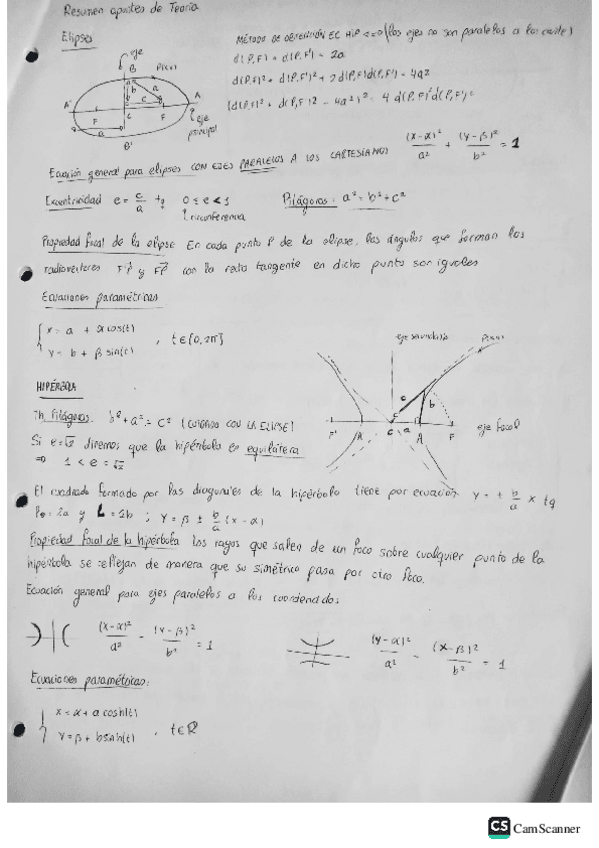 Resumen apuntes de Teoría
Elipses
eje
B P(x,y)
A' A
F C F
eje principal
B'
MÉTODO DE OBTENCIÓN EC HIP (los ejes no son paralelos a los
d(P,F) + d(P,F') = 2a
d(P,F)² + d(P,F')² + 2d(P,F)d(P,F') = 4a²
(d(P,F)² + d(P,F')² - 4a²)² = 4 d(P,F)²d(P,F')²
Ecuación general para elipses CON EJES PARALELOS A LOS CARTESIANOS (x-α)²/a² + (y-β)²/b² = 1
Excentricidad e = c/a 0 ≤ e < 1 Pitágoras: a² = b² + c²
circunferencia
Propiedad focal de la elipse En cada punto P de la elipse, los ángulos que forman los
radiovectores F'P y FP con la recta tangente en dicho punto son iguales
Ecuaciones paramétricas
x = a + α cos(t)
y = b + β sin(t) , t∈[0,2π]
eje secundario P(x,y)
c b
F' C a A F eje focal
HIPÉRBOLA
Th Pitágoras. b² + a² = c² (CUIDADO CON LA ELIPSE)
Si e=√2 diremos que la hipérbola es equilátera
⇒ 1 < e = √2
El cuadrado formado por las diagonales de la hipérbola tiene por ecuación y = ± b/a x tq
2a y L = 2b ; y = β ± b/a (x-α)
Propiedad focal de la hipérbola Los rayos que salen de un foco sobre cualquier punto de la
hipérbola se reflejan de manera que su simétrico pasa por otro foco.
Ecuación general para ejes paralelos a los coordenados
(x-α)²/a² - (y-β)²/b² = 1 (y-α)²/a² - (x-β)²/b² = 1
Ecuaciones paramétricas:
x = α + a cosh(t)
y = β + b sinh(t) , t∈ℝ
CS CamScanner